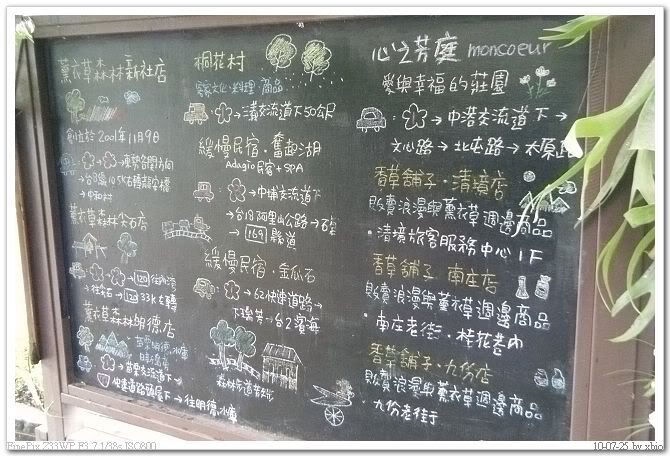 薰衣草森林新社店
創立於2001年11月9日
薰衣草森林尖石店
120
120 33K右轉
薰衣草森林明德店
苗栗交流道下
快速道路頭屋下→往明德水庫
桐花村
客家文化.料理.商品
→三灣交流道下50公尺
緩慢民宿.奮起湖
Adagio民宿+SPA
→中埔交流道下
→台18阿里山公路→石棹
→169縣道
緩慢民宿.金瓜石
→62快速道路→
下瑞芳→台2濱海
心之芳庭 moncoeur
愛與幸福的莊園
→中港交流道下→
文心路→北屯路→太原路
香草舖子.清境店
販賣浪漫與薰衣草週邊商品
.清境旅客服務中心1F
香草舖子.南庄店
販賣浪漫與薰衣草週邊商品
.南庄老街.桂花巷內
香草舖子.九份店
販賣浪漫與薰衣草週邊商品
.九份老街
FinePix Z33WP F3.7 1/38s ISO800
10-07-25 by xbio